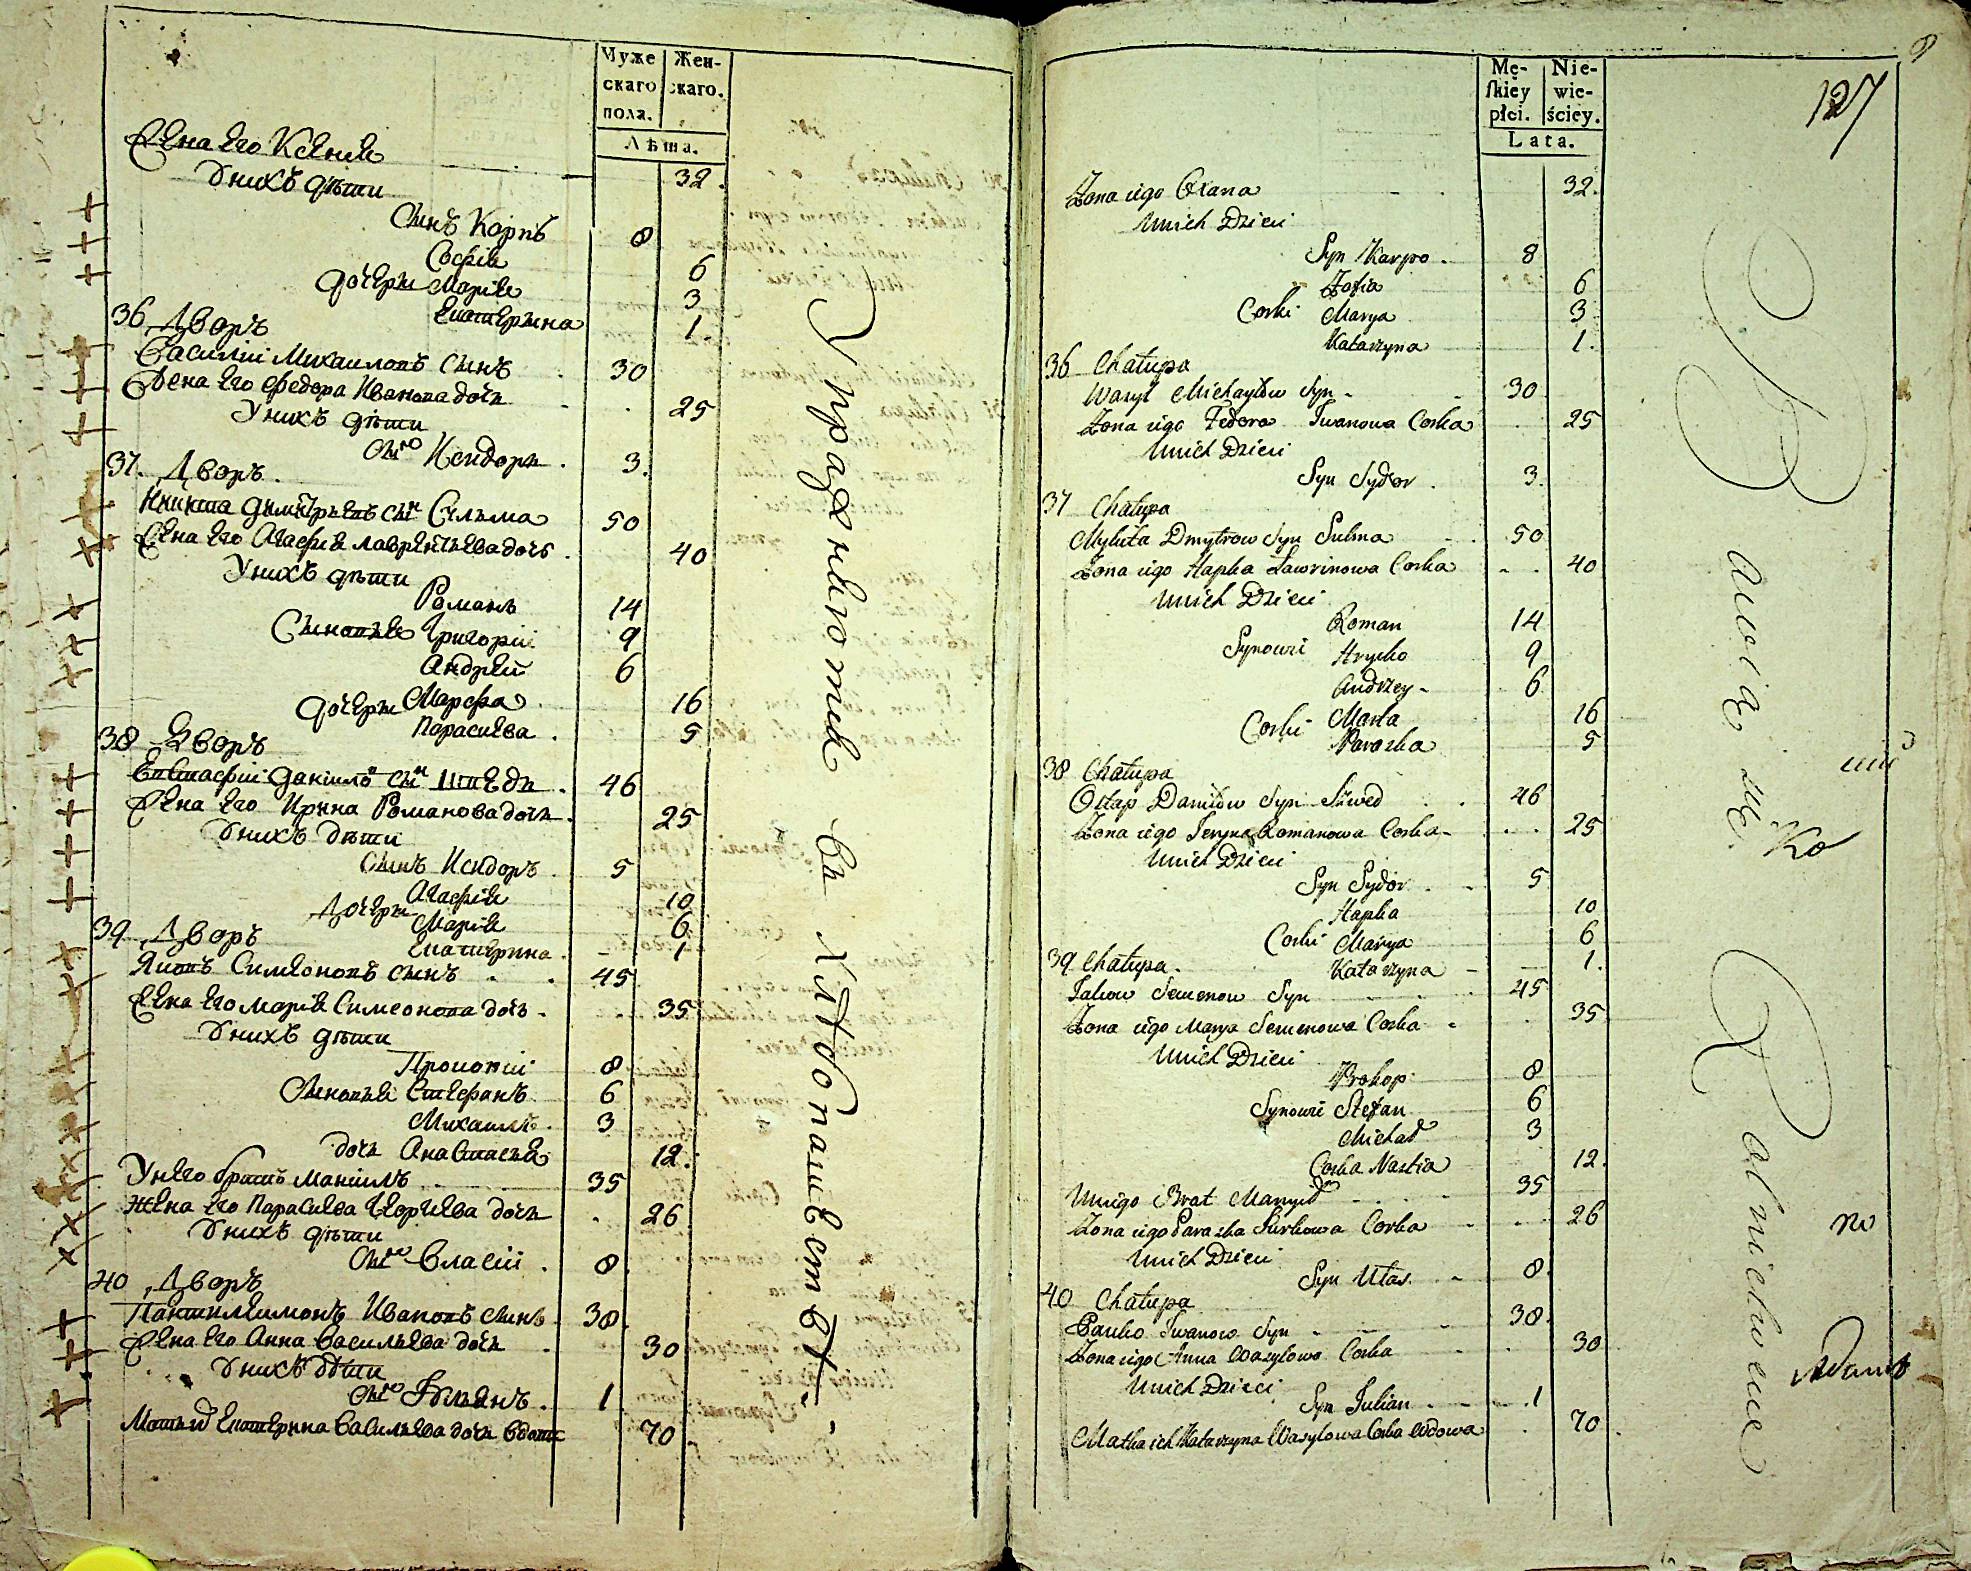 Мужескаго пола.
Женскаго.
Лѣта.
Жена его Ксенія 32.
У нихъ дѣти
Сынъ Карпъ 8
Софія 6
дочери Марія 3
Екатерына 1.
36 Дворъ
Василій Михаиловъ сынъ 30
Жена его Федора Иванова дочь 25
У нихъ дѣти
Сынъ Исидоръ. 3.
37. Дворъ.
Никита Димитрьевъ сынъ Сулима 50
Жена его Агафія Лаврентьева дочь. 40
У нихъ дѣти
Романъ 14
Сыновья Григорій 9
Андрей 6
дочери Марфа 16
Параскева. 5
38 Дворъ
Евстафій Даніиловъ сынъ Шведъ. 46
Жена его Ирина Романова дочь. 25
У нихъ дѣти
Сынъ Исидоръ 5
Агафія 10
Дочери Марія 6
Екатерина. 1
39 Дворъ
Яковъ Симеоновъ сынъ 45
Жена его Марія Симеонова дочь. 35
У нихъ дѣти
Прокопій 8
Сыновья Стефанъ 6
Михаилъ. 3
дочь Анастасья 12.
У него братъ Маніилъ 35
Жена его Параскева Георгіева дочь 26
У нихъ дѣти
Сынъ Власій. 8
40 Дворъ
Пантилеимонъ Ивановъ сынъ 38
Жена его Анна Васильева дочь 30
У нихъ дѣти
Сынъ Юльянъ. 1
Мать их Екатерина Васильева дочь вдова 70
Упражняются въ хлѣбопашествѣ.
127
Męskiey płci.
Niewieściey.
Lata.
Żona iego Oxana 32.
U nich Dzieci
Syn Karpo. 8
Zofia 6
Corki Marya 3
Katarzyna 1.
36 Chałupa
Wasyl Michayłow Syn 30
Żona iego Fedora Iwanowa Corka 25
U nich Dzieci
Syn Sydor. 3.
37 Chałupa
Mykita Dmytrow Syn Sulima 50
Żona iego Hapka Ławrinowa Corka 40
U nich Dzieci
Roman 14
Synowie Hryćko 9
Andrzey 6
Corki Marta 16
Paraska 5
38 Chałupa
Ostap Daniłow Syn Szwed 46
Żona iego Jeryna Romanowa Corka 25
U nich Dzieci
Syn Sydor. 5
Hapka 10
Corki Marya 6
Katarzyna 1.
39 Chałupa.
Jakow Semenow Syn 45
Żona iego Marya Semenowa Corka 35
U nich Dzieci
Prokop 8
Synowie Stefan 6
Michał 3
Corka Nastia 12.
U niego Brat Manuył 35
Żona iego Paraska Jurkowa Corka 26
U nich Dzieci
Syn Ułas. 8.
40 Chałupa
Pańko Iwanow Syn 38.
Żona iego Anna Wasylowa Corka 30
U nich Dzieci
Syn Julian 1
Matka ich Katarzyna Wasylowa Corka Wdowa 70
Bawią się Rolnictwem